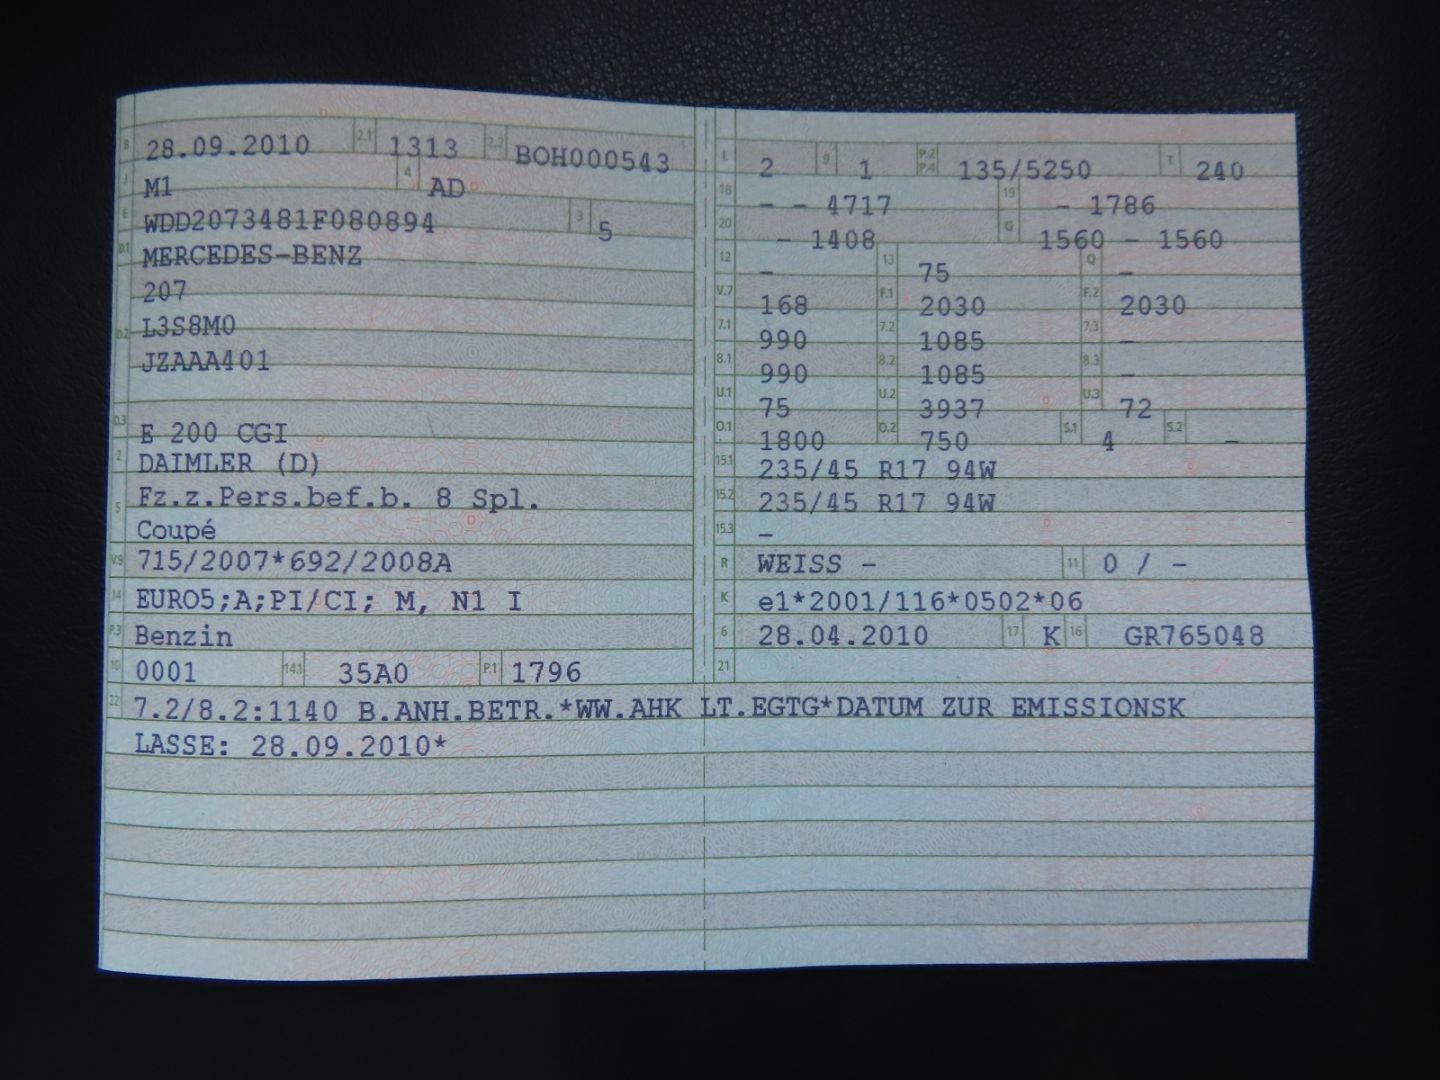 B 28.09.2010 2.1 1313 2.2 BOH000543
J M1 4 AD
E WDD2073481F080894 3 5
D.1 MERCEDES-BENZ
207
D.2 L3S8M0
JZAAA401
D.3 E 200 CGI
2 DAIMLER (D)
5 Fz.z.Pers.bef.b. 8 Spl.
Coupé
V.9 715/2007*692/2008A
14 EURO5;A;PI/CI; M, N1 I
P.3 Benzin
10 0001 14.1 35A0 P.1 1796
L 2 9 1 P.2 P.4 135/5250 T 240
18 - - 4717 19 - 1786
20 - 1408 G 1560 - 1560
12 - 13 75 Q -
V.7 168 F.1 2030 F.2 2030
7.1 990 7.2 1085 7.3 -
8.1 990 8.2 1085 8.3 -
U.1 75 U.2 3937 U.3 72
O.1 1800 O.2 750 S.1 4 S.2 -
15.1 235/45 R17 94W
15.2 235/45 R17 94W
15.3 -
R WEISS - 11 0 / -
K e1*2001/116*0502*06
6 28.04.2010 17 K 16 GR765048
21
22 7.2/8.2:1140 B.ANH.BETR.*WW.AHK LT.EGTG*DATUM ZUR EMISSIONSK
LASSE: 28.09.2010*